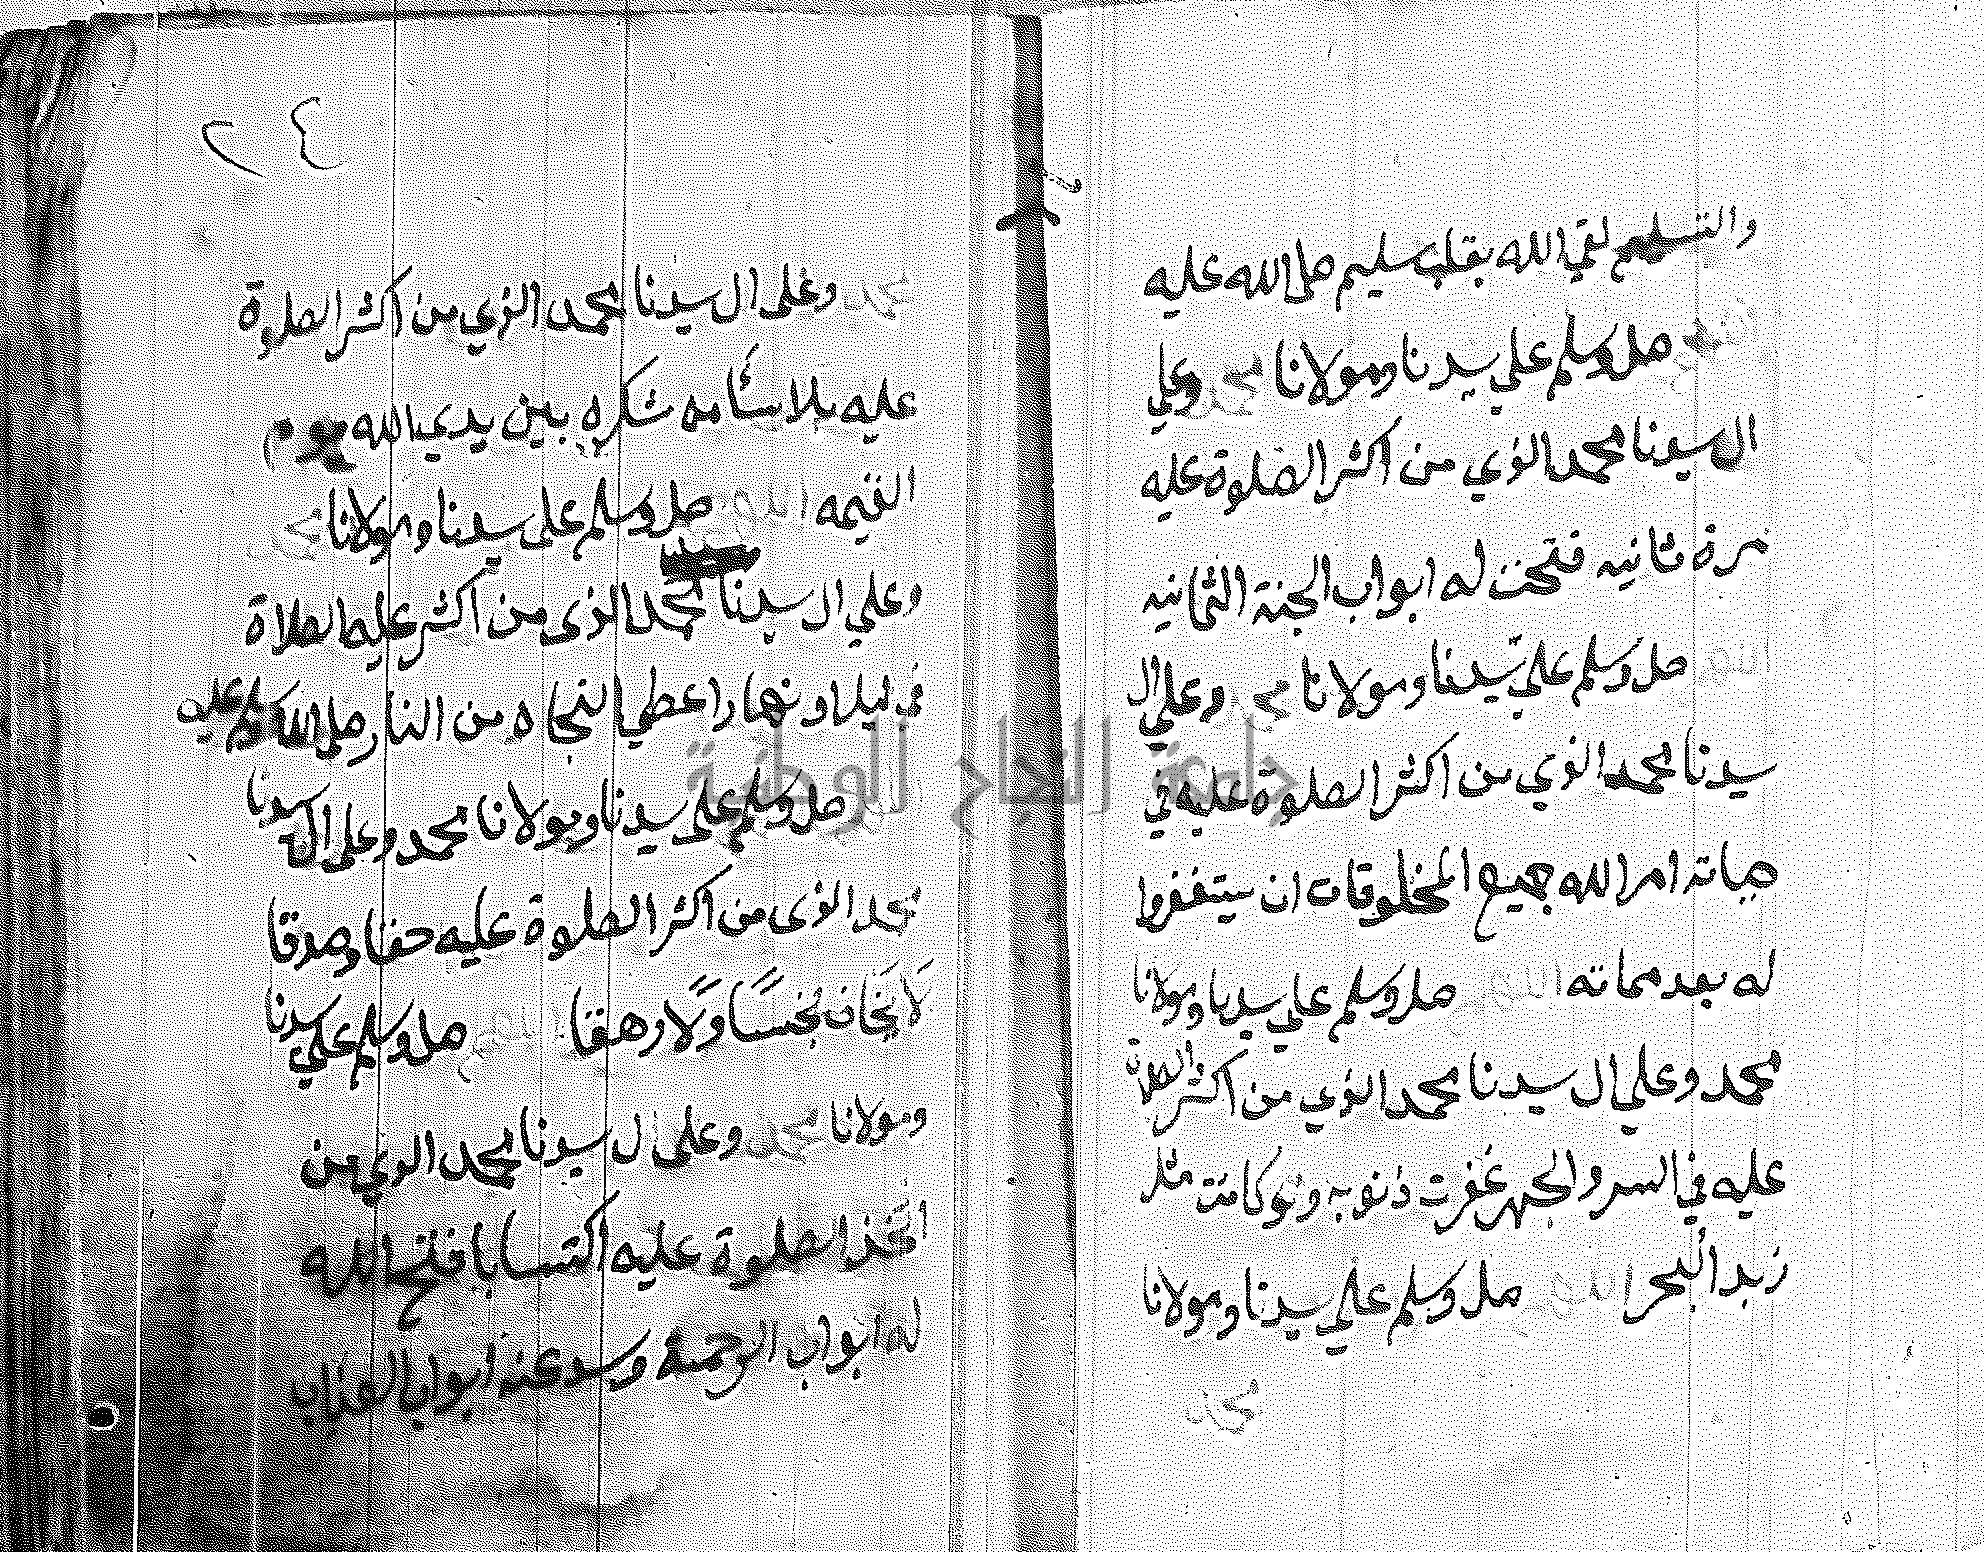 والتسليم لقي الله بقلب سليم صلى الله عليه
صل وسلم علي سيدنا ومولانا محمد وعلي
ال سيدنا محمد الذي من اكثر الصلوة عليه
مرة ثانيه فتحت له ابواب الجنة الثمانيه
صل وسلم علي سيدنا ومولانا محمد وعلي ال
سيدنا محمد الذي من اكثر الصلوة عليه في
حياته امر الله جميع المخلوقات ان يستغفروا
له بعد مماته اللهم صل وسلم علي سيدنا ومولانا
محمد وعلي ال سيدنا محمد الذي من اكثر الصلاة
عليه في السر والجهر غفرت ذنوبه ولو كانت مثل
زبد البحر اللهم صل وسلم علي سيدنا ومولانا
محمد
٢٤
محمد وعلى ال سيدنا محمد الذي من اكثر الصلوة
عليه بلا سئامه شكره بين يدي الله يوم
القيمه اللهم صل وسلم على سيدنا ومولانا محمد
وعلي ال سيدنا محمد الذى من اكثر عليه الصلاة
في ليلا ونهارا اعطي النجاه من النار صلى الله وسلم عليه
صل وسلم على سيدنا ومولانا محمد وعلى ال سيدنا
محمد الذى من اكثر الصلوة عليه حقا وصدقا
لا يخاف بخسا ولا رهقا اللهم صل وسلم علي سيدنا
ومولانا محمد وعلى ال سيدنا محمد الذي من
اتخذ الصلوة عليه اكتسابا فتح الله
له ابواب الرحمة وسد عنه ابواب العذاب
جامعة النجاح الوطنية